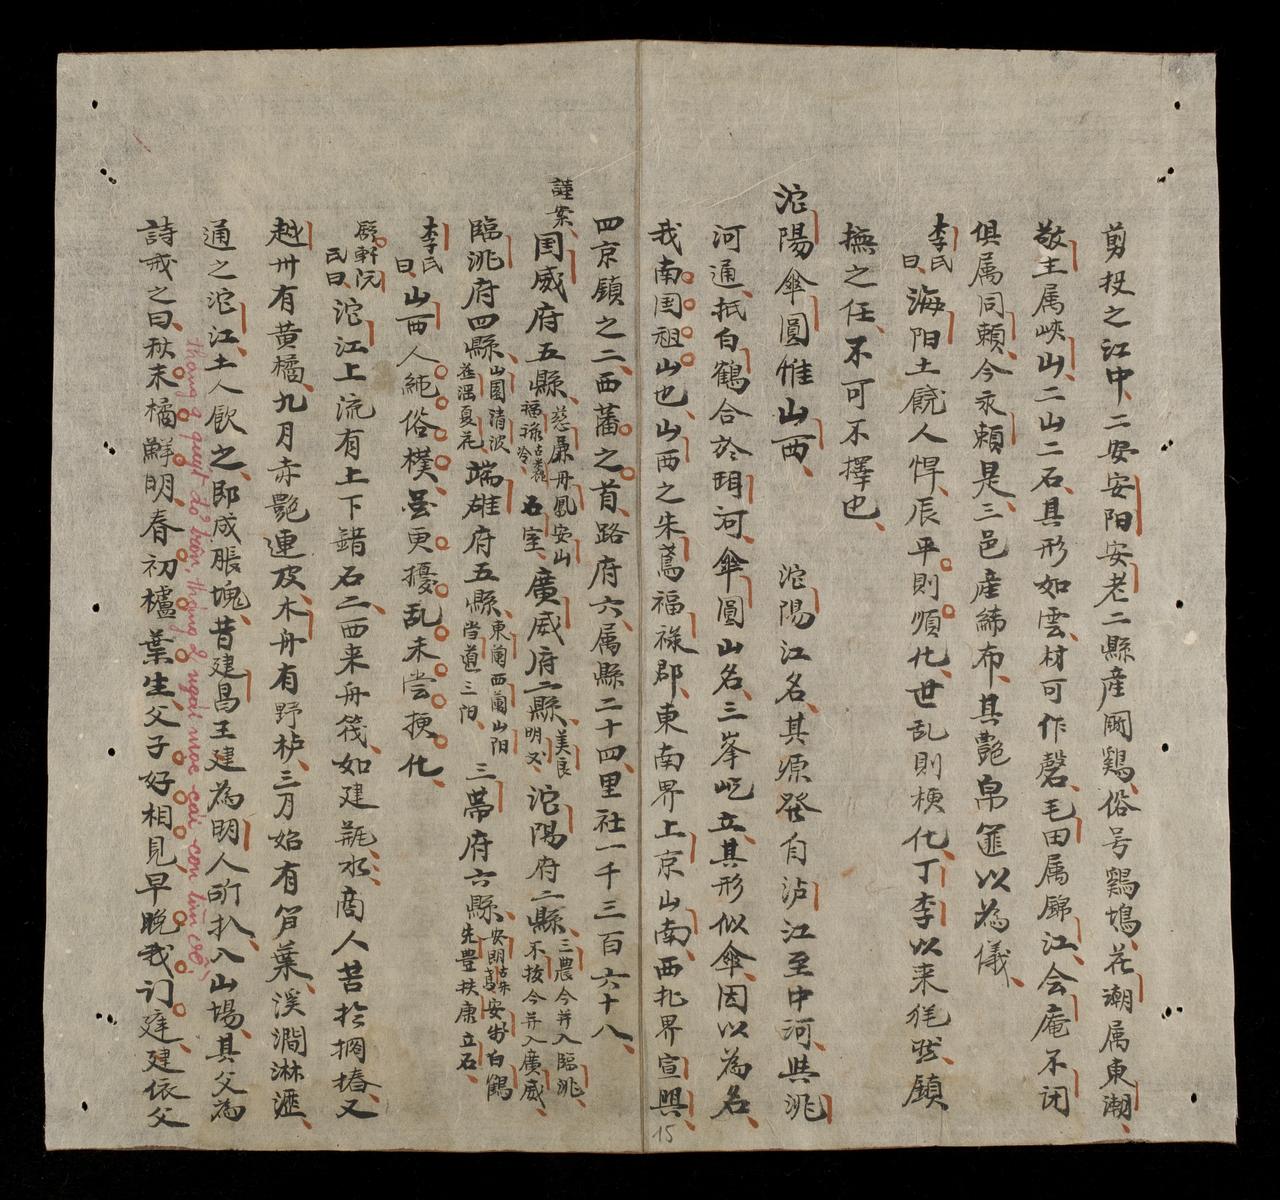 剪投之江中、二安安阳安老二縣産鬪鷄、俗号鷄塢、花潮属東潮、
敬主属峽山、二山二石、具形如雲、材可作磬、毛田属錦江、会庵不闭
俱属同頼、今永頼是、三邑産絺布、其艶帛篚以為儀、
李氏曰、海阳土饒人悍、辰平則順化、世乱則梗化、丁李以来徃𣦼、鎮
撫之任、不可不擇也、
沱陽傘圓惟山西、　沱陽江名、其源發自泸江至中河、與洮
河通、抵白鶴合於珥河、傘圓山名、三峯屹立、其形似傘、因以為名、
我南国祖山也、山西之朱鳶福禄郡、東南界上京山南、西北界宣興、
15
四京鎮之二、西藩之首、路府六属縣二十四、里社一千三百六十八、
謹案国威府五縣、慈廉丹鳳安山福禄古農今石室、廣威府二縣、美良明义、沱陽府二縣、三農今并入臨洮、不拔今并入廣威、
臨洮府四縣、山圍清波並滛夏花、端雄府五縣、東蘭西蘭山阳当道三阳、三帶府六縣、安明古朱安朗白鶴先豊扶康立石、
李氏曰、山西人純俗樸、虽更擾乱未嘗梗化、
縣軒阮氏曰、沱江上流有上下錯石二、西来舟筏、如建瓶水、商人苦於搁椿、又
越州有黄橘、九月赤艶連皮、木舟有野栌、三月始有笋葉、溪澗淋滙、
通之沱江、土人飲之、即成脹塊、昔建昌王建為明人所扒入山場、其父為
詩戒之曰、秋末橘鮮明、春初櫨葉生、父子好相見、早晚我订莚、建依父
tháng 9 quýt đỏ trôn, tháng 2 ngoài mọc cái con tìm về,